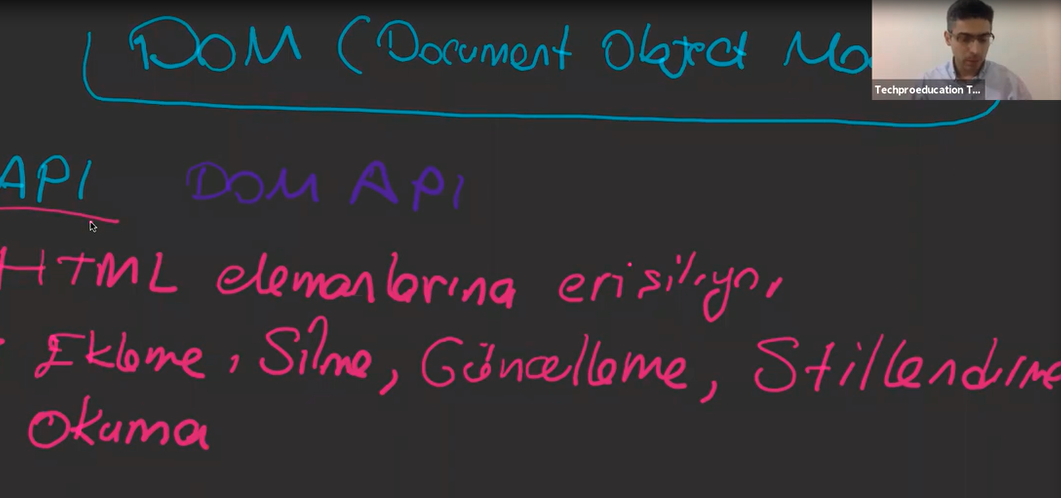 DOM (Document Object Mo
Techproeducation T...
API DOM API
HTML elemanlarına erisiliyor
Ekleme, Silme, Güncelleme, Stillendirme
Okuma